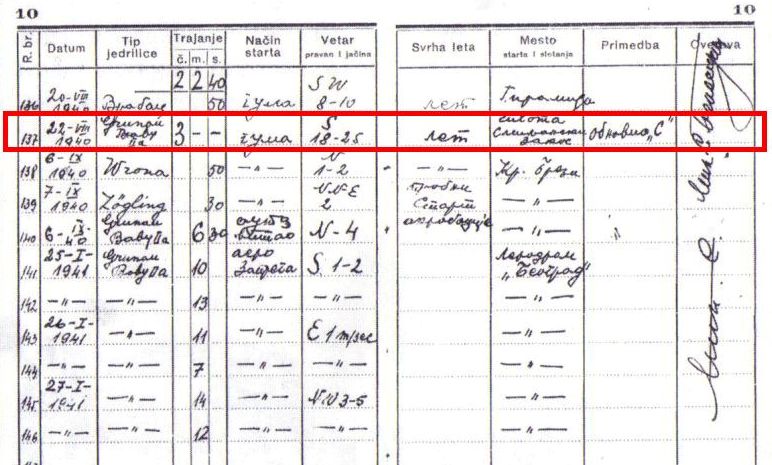 10 10
R. br. Datum Tip jedrilice Trajanje č. m. s. Način starta Vetar pravan i jačina Svrha leta Mesto starta i sletanja Primedba Overava
2 2 40
136 20-VIII 1940 Врабац 50 гума SW 8-10 лет Пирамида
137 22-VIII 1940 Грунау Baby IIa 3 — — гума S 18-25 лет обновио „С"
138 6-IX 1940 Wrona 50 —„— N 1-2 —„— Кр. Брези
139 7-IX 1940 Zögling 30 —„— NNE 2 пробни —„—
140 6-IX 40 Грунау Baby IIa 6 30 N-4 Старт акробације „
141 25-I- 1941 Грунау Baby IIa 10 аеро запрега S 1-2 Аеродром „Београд"
142 —„— —„— 13 —„— —„— —„—
143 26-I- 1941 —„— 11 —„— E 1 m/sec —„—
144 —„— —„— 7 —„— —„— —„—
145 27-I- 1941 —„— 14 —„— NW 3-5 —„—
146 —„— —„— 12 —„— —„— —„—